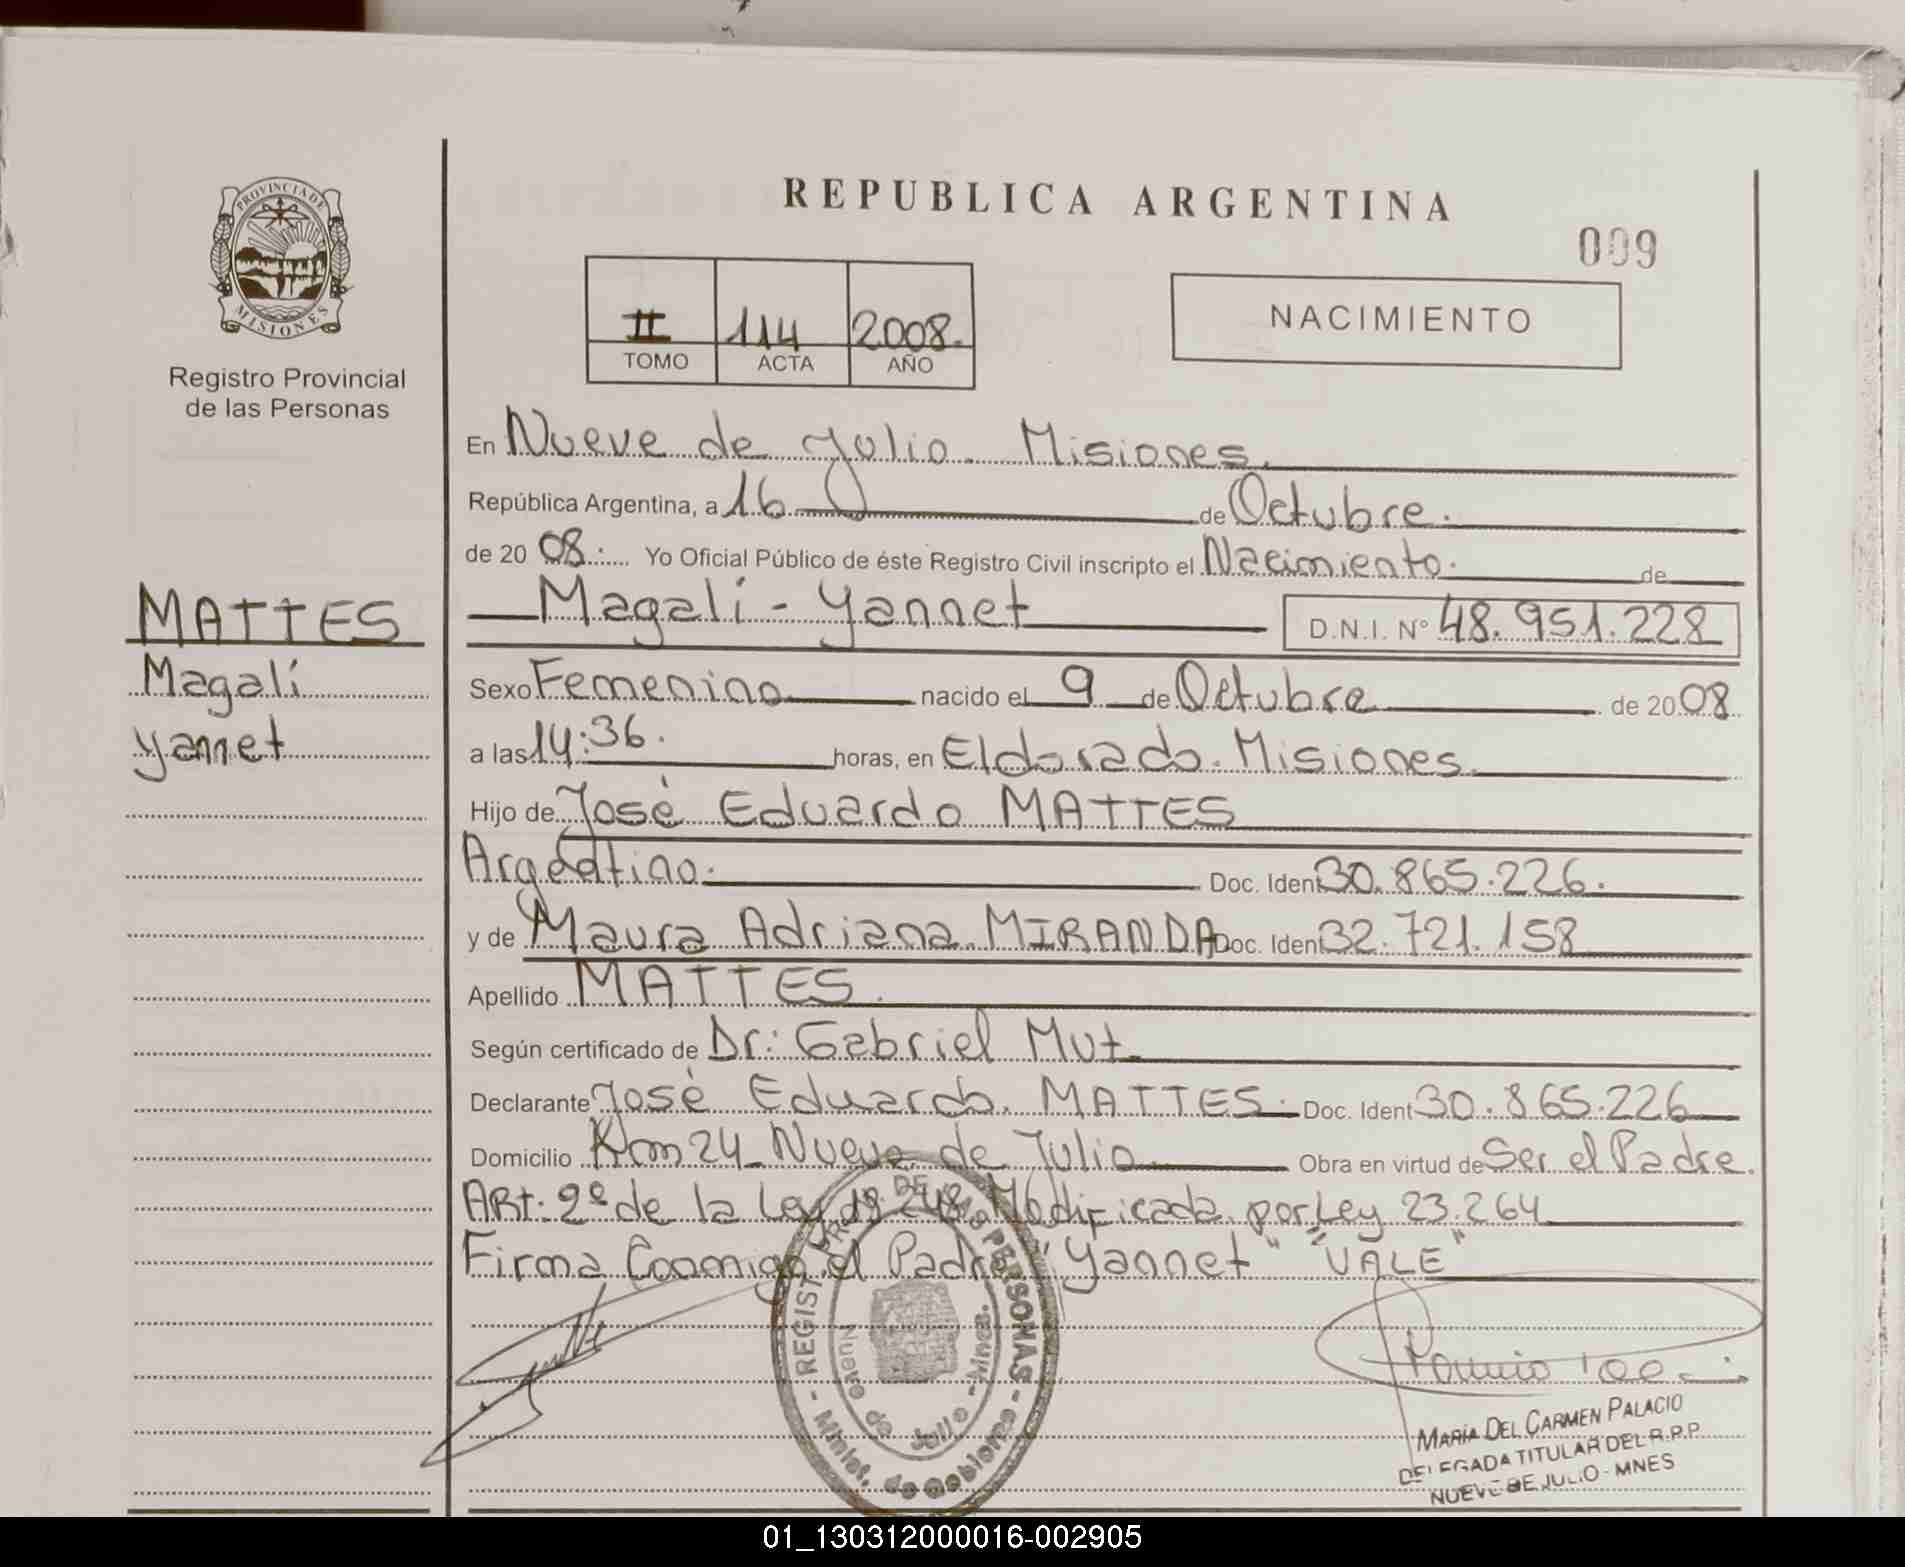 REPUBLICA ARGENTINA
009
PROVINCIA DE
MISIONES
Registro Provincial
de las Personas
II 114 2008.
TOMO ACTA AÑO
NACIMIENTO
En Nueve de Julio. Misiones.
República Argentina, a 16 de Octubre.
de 20 08. Yo Oficial Público de éste Registro Civil inscripto el Nacimiento. de
Magalí - Yannet D.N.I. Nº 48.951.228
MATTES
Magalí
Yannet
Sexo Femenino nacido el 9 de Octubre de 20 08.
a las 14:36. horas, en Eldorado. Misiones.
Hijo de José Eduardo MATTES
Argentino. Doc. Ident 30.865.226.
y de Maura Adriana MIRANDA Doc. Ident 32.721.158
Apellido MATTES.
Según certificado de Dr: Gabriel Mut.
Declarante José Eduardo. MATTES. Doc. Ident 30.865.226
Domicilio Km 24 Nueve de Julio Obra en virtud de Ser el Padre.
ARt: 2º de la Ley 18.248 Modificada por Ley 23.264
Firma Conmigo el Padre "Yannet" "VALE"
REGISTRO PROV. DE LAS PERSONAS - Minist. de Gobierno -
Nueve de Julio - Mnes.
MARIA DEL CARMEN PALACIO
DELEGADA TITULAR DEL R.P.P.
NUEVE DE JULIO - MNES
01_130312000016-002905